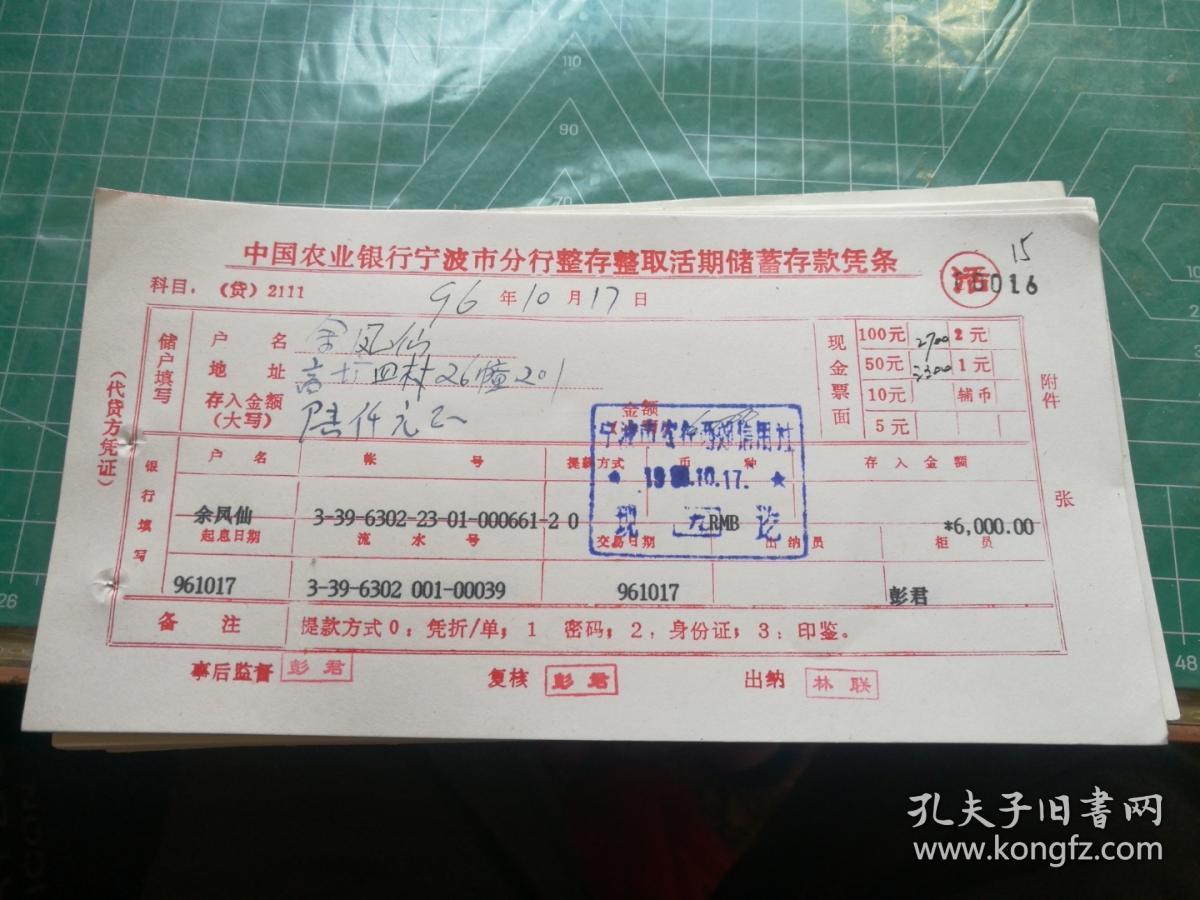 中国农业银行宁波市分行整存整取活期储蓄存款凭条
科目.（贷）2111
96年10月17日
活
15
016
（代贷方凭证）
储户填写
户名 余凤仙
地址 高 四村26幢201
存入金额（大写） 陆仟元正
金额
现金票面
100元 2700 2元
50元 3300 1元
10元 辅币
5元
附件 张
银行填写
户名 帐号 提款方式 币种 存入金额
余凤仙 3-39-6302-23-01-000661-2 0 RMB *6,000.00
起息日期 流水号 交易日期 出纳员 柜员
961017 3-39-6302 001-00039 961017 彭君
宁波市 信用社
10.17.
现 讫
备注 提款方式0：凭折/单；1 密码；2：身份证；3：印鉴。
事后监督 彭君 复核 彭君 出纳 林联
110
90
26
48
孔夫子旧书网
www.kongfz.com